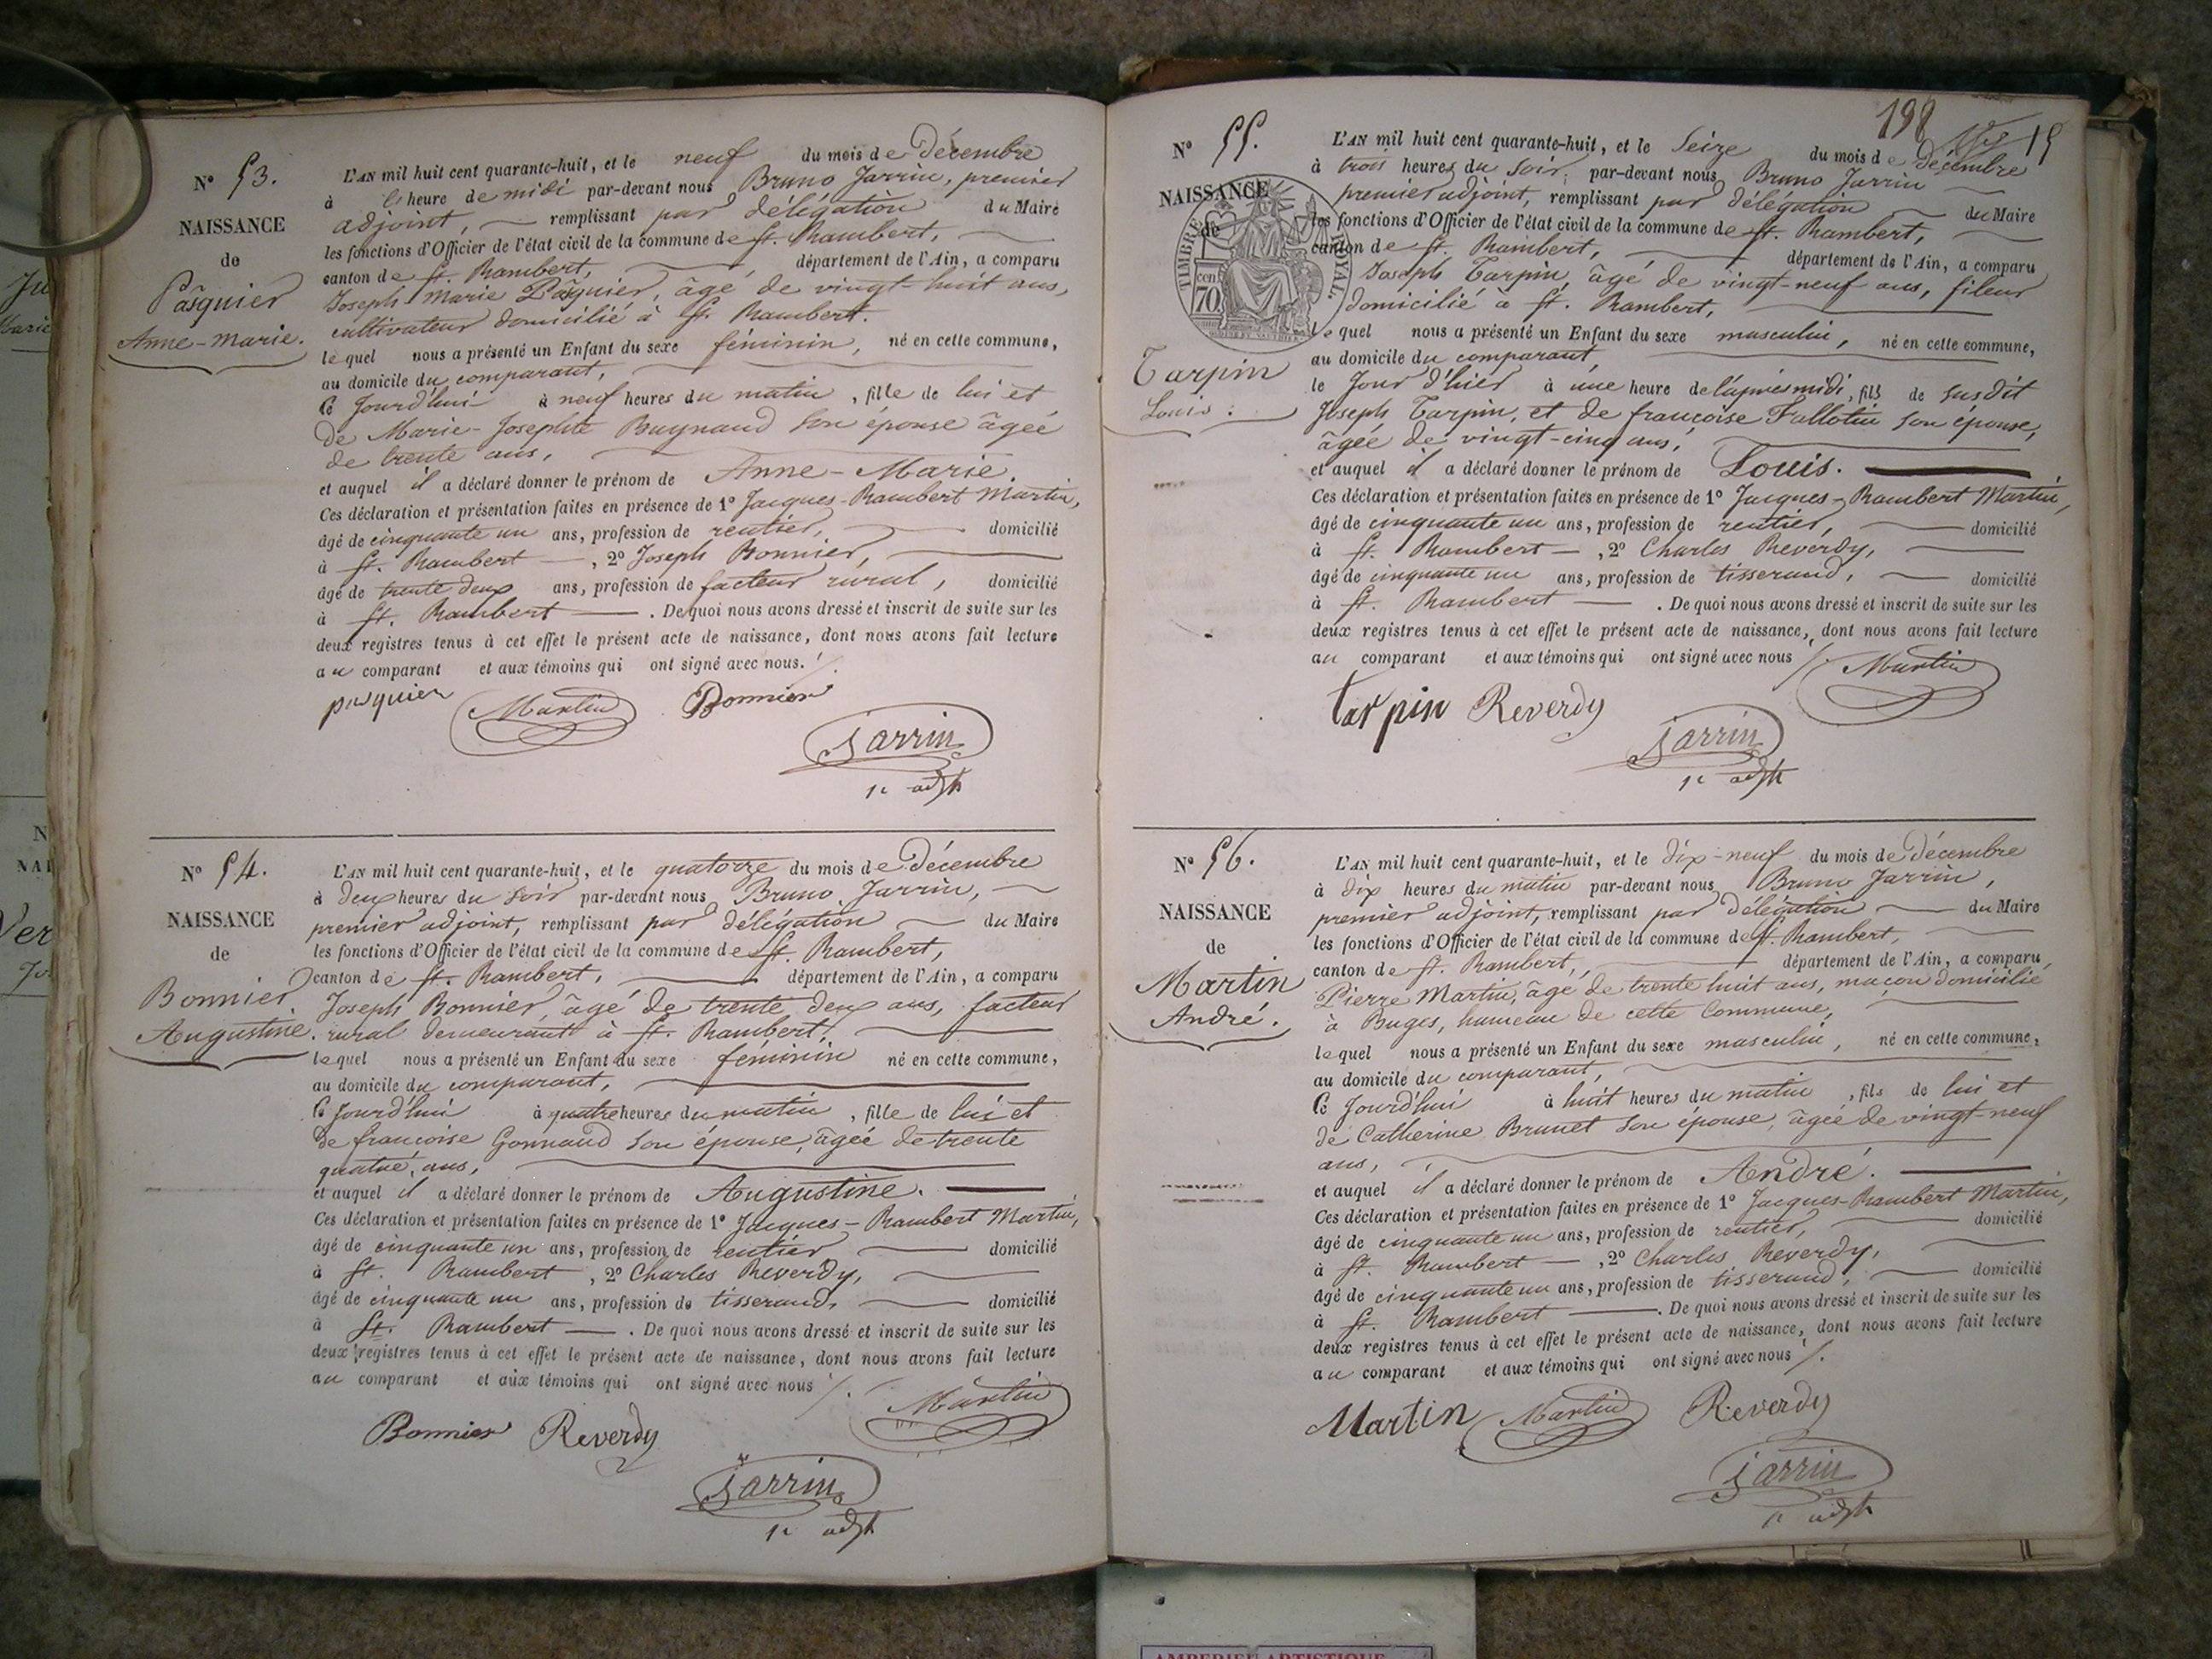 N° 53.
NAISSANCE
de
Pasquier
Anne-Marie.
L'AN mil huit cent quarante-huit, et le neuf du mois de Décembre
à heure de midi par-devant nous Bruno Jarrin, premier
adjoint, remplissant par délégation du Maire
les fonctions d'Officier de l'état civil de la commune de St. Rambert,
canton de St. Rambert, département de l'Ain, a comparu
Joseph Marie Pasquier, âgé de vingt-huit ans,
cultivateur domicilié à St. Rambert.
lequel nous a présenté un Enfant du sexe féminin, né en cette commune,
au domicile du comparant,
ce Jourd'hui à neuf heures du matin, fille de lui et
de Marie-Josephte Buynaud son épouse âgée
de trente ans,
et auquel il a déclaré donner le prénom de Anne-Marie.
Ces déclaration et présentation faites en présence de 1° Jacques-Rambert Martin,
âgé de cinquante un ans, profession de rentier, domicilié
à St. Rambert, 2° Joseph Bonnier,
âgé de trente deux ans, profession de facteur rural, domicilié
à St. Rambert. De quoi nous avons dressé et inscrit de suite sur les
deux registres tenus à cet effet le présent acte de naissance, dont nous avons fait lecture
au comparant et aux témoins qui ont signé avec nous./.
pasquier Martin Bonnier
Jarrin
1er adjt
N° 54.
NAISSANCE
de
Bonnier
Augustine.
L'AN mil huit cent quarante-huit, et le quatorze du mois de Décembre
à deux heures du soir par-devant nous Bruno Jarrin,
premier adjoint, remplissant par délégation du Maire
les fonctions d'Officier de l'état civil de la commune de St. Rambert,
canton de St. Rambert, département de l'Ain, a comparu
Joseph Bonnier, âgé de trente deux ans, facteur
rural demeurant à St. Rambert,
lequel nous a présenté un Enfant du sexe féminin né en cette commune,
au domicile du comparant,
ce Jourd'hui à quatre heures du matin, fille de lui et
de francoise Gonnaud son épouse, âgée de trente
quatre, ans,
et auquel il a déclaré donner le prénom de Augustine.
Ces déclaration et présentation faites en présence de 1° Jacques-Rambert Martin,
âgé de cinquante un ans, profession de rentier domicilié
à St. Rambert, 2° Charles Reverdy,
âgé de cinquante un ans, profession de tisserand, domicilié
à St. Rambert. De quoi nous avons dressé et inscrit de suite sur les
deux registres tenus à cet effet le présent acte de naissance, dont nous avons fait lecture
au comparant et aux témoins qui ont signé avec nous /.
Bonnier Reverdy Martin
Jarrin
1er adjt
198
15
N° 55.
NAISSANCE
de
TIMBRE ROYAL.
70 cen
Tarpin
Louis.
L'AN mil huit cent quarante-huit, et le Seize du mois de décembre
à trois heures du soir, par-devant nous Bruno Jarrin
premier adjoint, remplissant par délégation du Maire
les fonctions d'Officier de l'état civil de la commune de St. Rambert,
canton de St. Rambert, département de l'Ain, a comparu
Joseph Tarpin, âgé de vingt-neuf ans, fileur
domicilié à St. Rambert,
lequel nous a présenté un Enfant du sexe masculin, né en cette commune,
au domicile du comparant,
le Jour d'hier à une heure de l'après midi, fils de susdit
Joseph Tarpin, et de francoise Fallotin son épouse,
âgée de vingt-cinq ans,
et auquel il a déclaré donner le prénom de Louis.
Ces déclaration et présentation faites en présence de 1° Jacques-Rambert Martin,
âgé de cinquante un ans, profession de rentier, domicilié
à St. Rambert, 2° Charles Reverdy,
âgé de cinquante un ans, profession de tisserand, domicilié
à St. Rambert. De quoi nous avons dressé et inscrit de suite sur les
deux registres tenus à cet effet le présent acte de naissance, dont nous avons fait lecture
au comparant et aux témoins qui ont signé avec nous /.
Martin
tarpin Reverdy
Jarrin
1er adjt
N° 56.
NAISSANCE
de
Martin
André.
L'AN mil huit cent quarante-huit, et le dix-neuf du mois de décembre
à dix heures du matin par-devant nous Bruno Jarrin,
premier adjoint, remplissant par délégation du Maire
les fonctions d'Officier de l'état civil de la commune de St. Rambert,
canton de St. Rambert, département de l'Ain, a comparu,
Pierre Martin, âgé de trente huit ans, maçon domicilié
à Buges, hameau de cette Commune,
lequel nous a présenté un Enfant du sexe masculin, né en cette commune,
au domicile du comparant,
ce Jourd'hui à huit heures du matin, fils de lui et
de Catherine Brunet son épouse, âgée de vingt-neuf
ans,
et auquel il a déclaré donner le prénom de André.
Ces déclaration et présentation faites en présence de 1° Jacques-Rambert Martin,
âgé de cinquante un ans, profession de rentier, domicilié
à St. Rambert, 2° Charles Reverdy,
âgé de cinquante un ans, profession de tisserand, domicilié
à St. Rambert. De quoi nous avons dressé et inscrit de suite sur les
deux registres tenus à cet effet le présent acte de naissance, dont nous avons fait lecture
au comparant et aux témoins qui ont signé avec nous /.
Martin Martin Reverdy
Jarrin
1er adjt